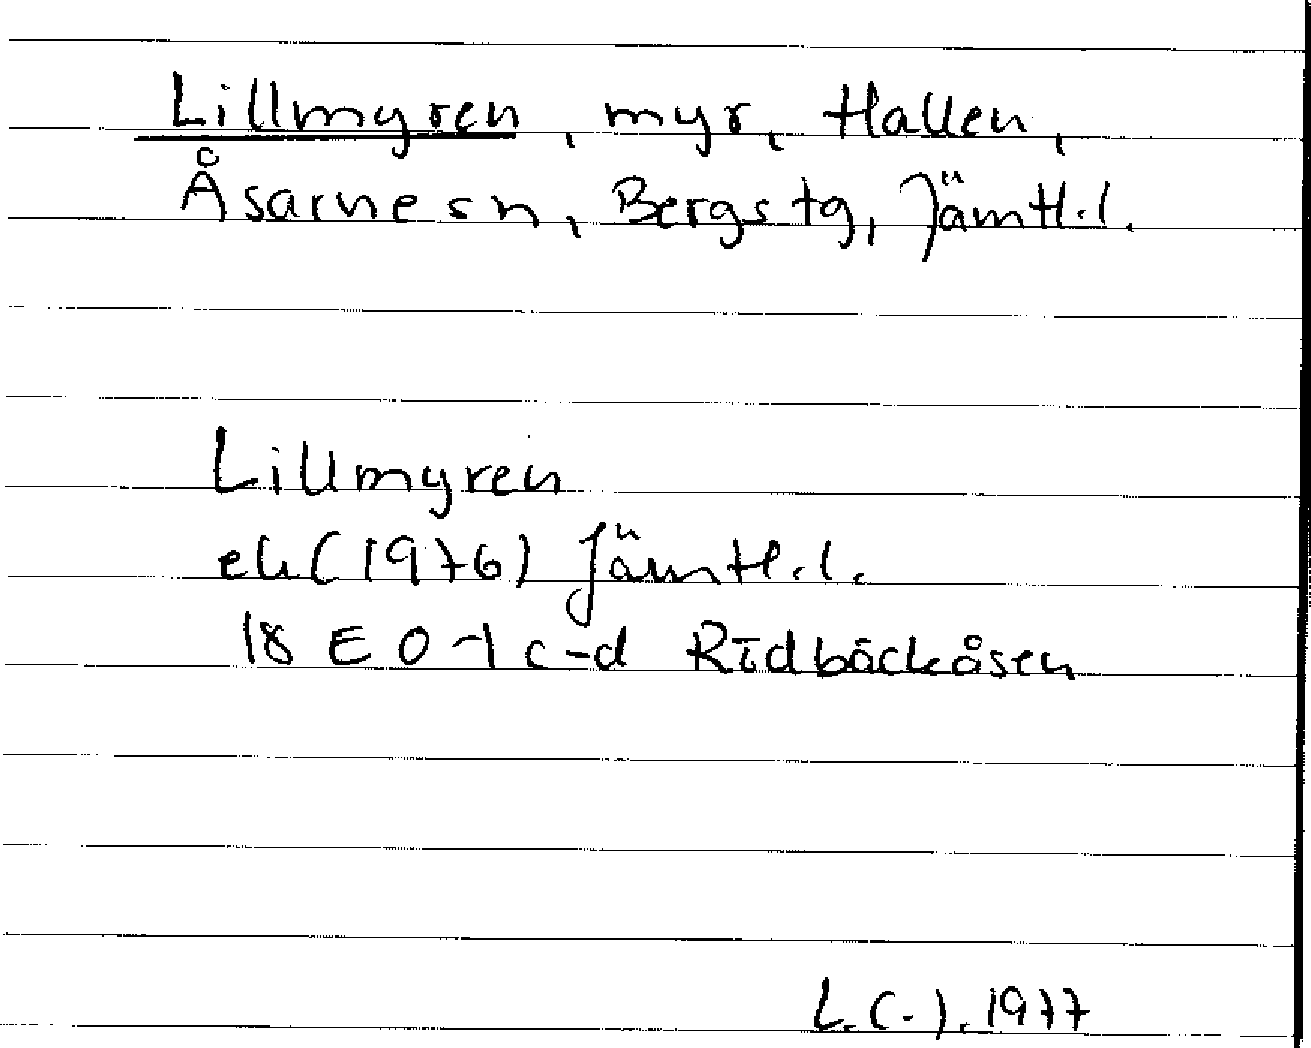 Lillmyren, myr, Hallen,
Åsarne sn, Bergs tg, Jämtl.l.
Lillmyren
ek (1976) Jämtl.l.
18 E 0-1 c-d Rīdbäckåsen
L.(-). 1977